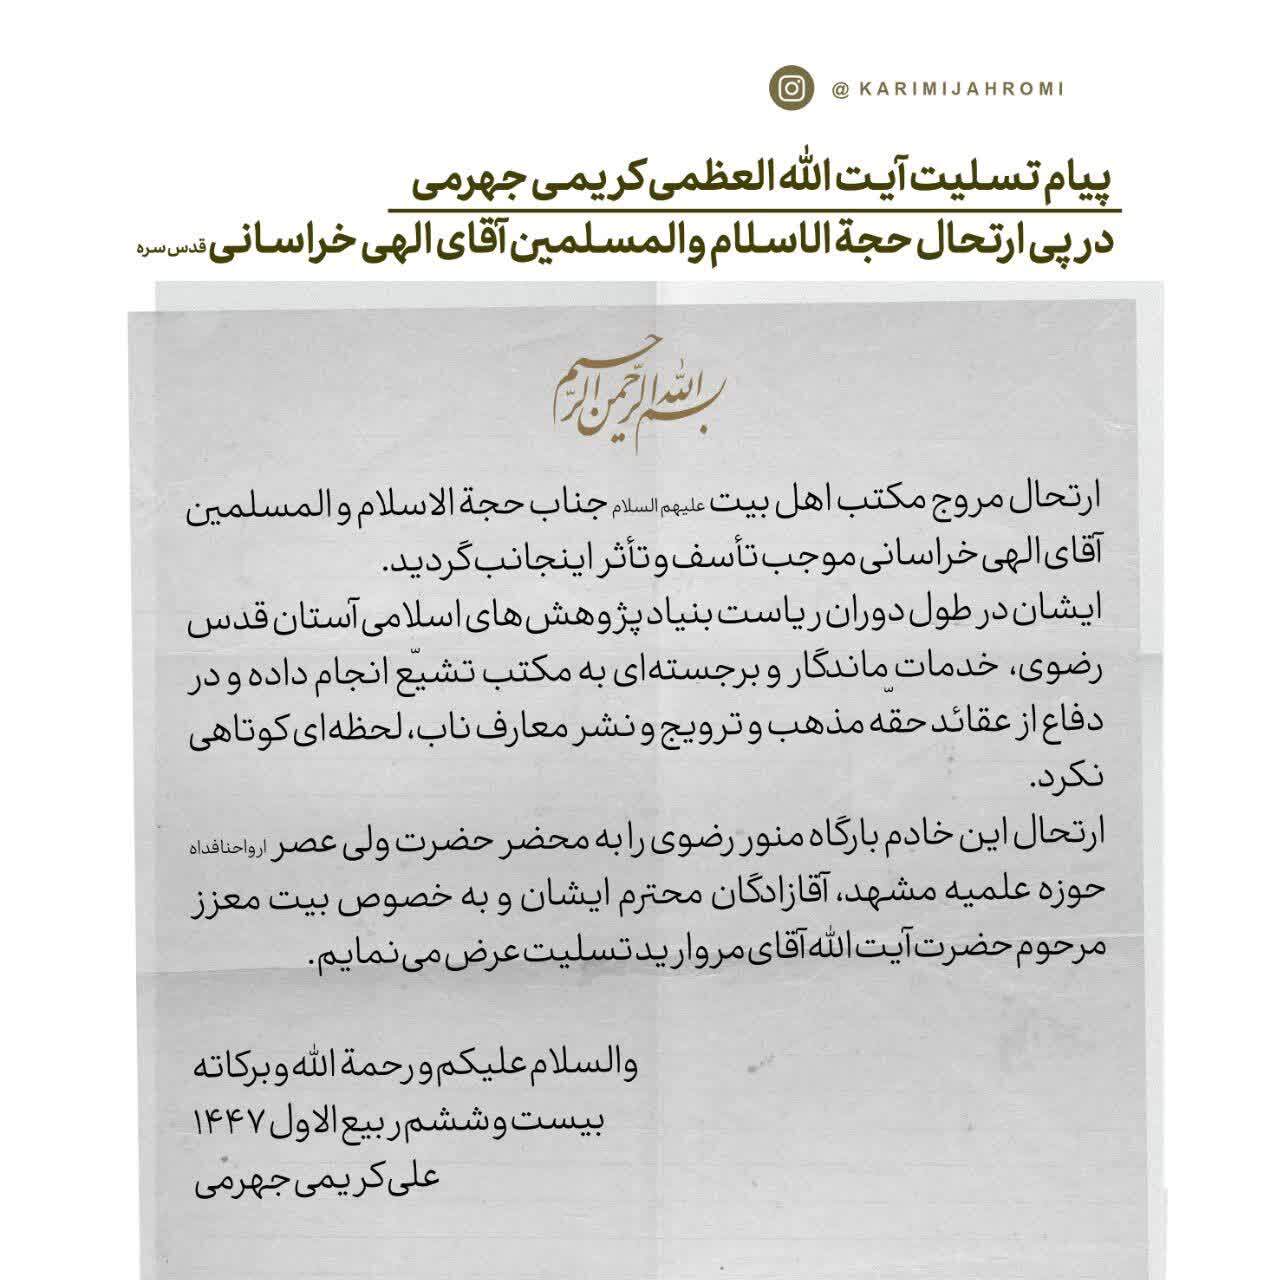 @KARIMIJAHROMI
پیام تسلیت آیت الله العظمی کریمی جهرمی
در پی ارتحال حجة الاسلام والمسلمین آقای الهی خراسانی قدس سره
بسم الله الرحمن الرحیم
ارتحال مروج مکتب اهل بیت علیهم السلام جناب حجة الاسلام والمسلمین
آقای الهی خراسانی موجب تأسف و تأثر اینجانب گردید.
ایشان در طول دوران ریاست بنیاد پژوهش‌های اسلامی آستان قدس
رضوی، خدمات ماندگار و برجسته‌ای به مکتب تشیّع انجام داده و در
دفاع از عقائد حقّه مذهب و ترویج و نشر معارف ناب، لحظه‌ای کوتاهی
نکرد.
ارتحال این خادم بارگاه منور رضوی را به محضر حضرت ولی عصر ارواحنافداه
حوزه علمیه مشهد، آقازادگان محترم ایشان و به خصوص بیت معزز
مرحوم حضرت آیت الله آقای مروارید تسلیت عرض می‌نمایم.
والسلام علیکم و رحمة الله و برکاته
بیست و ششم ربیع الاول ۱۴۴۷
علی کریمی جهرمی